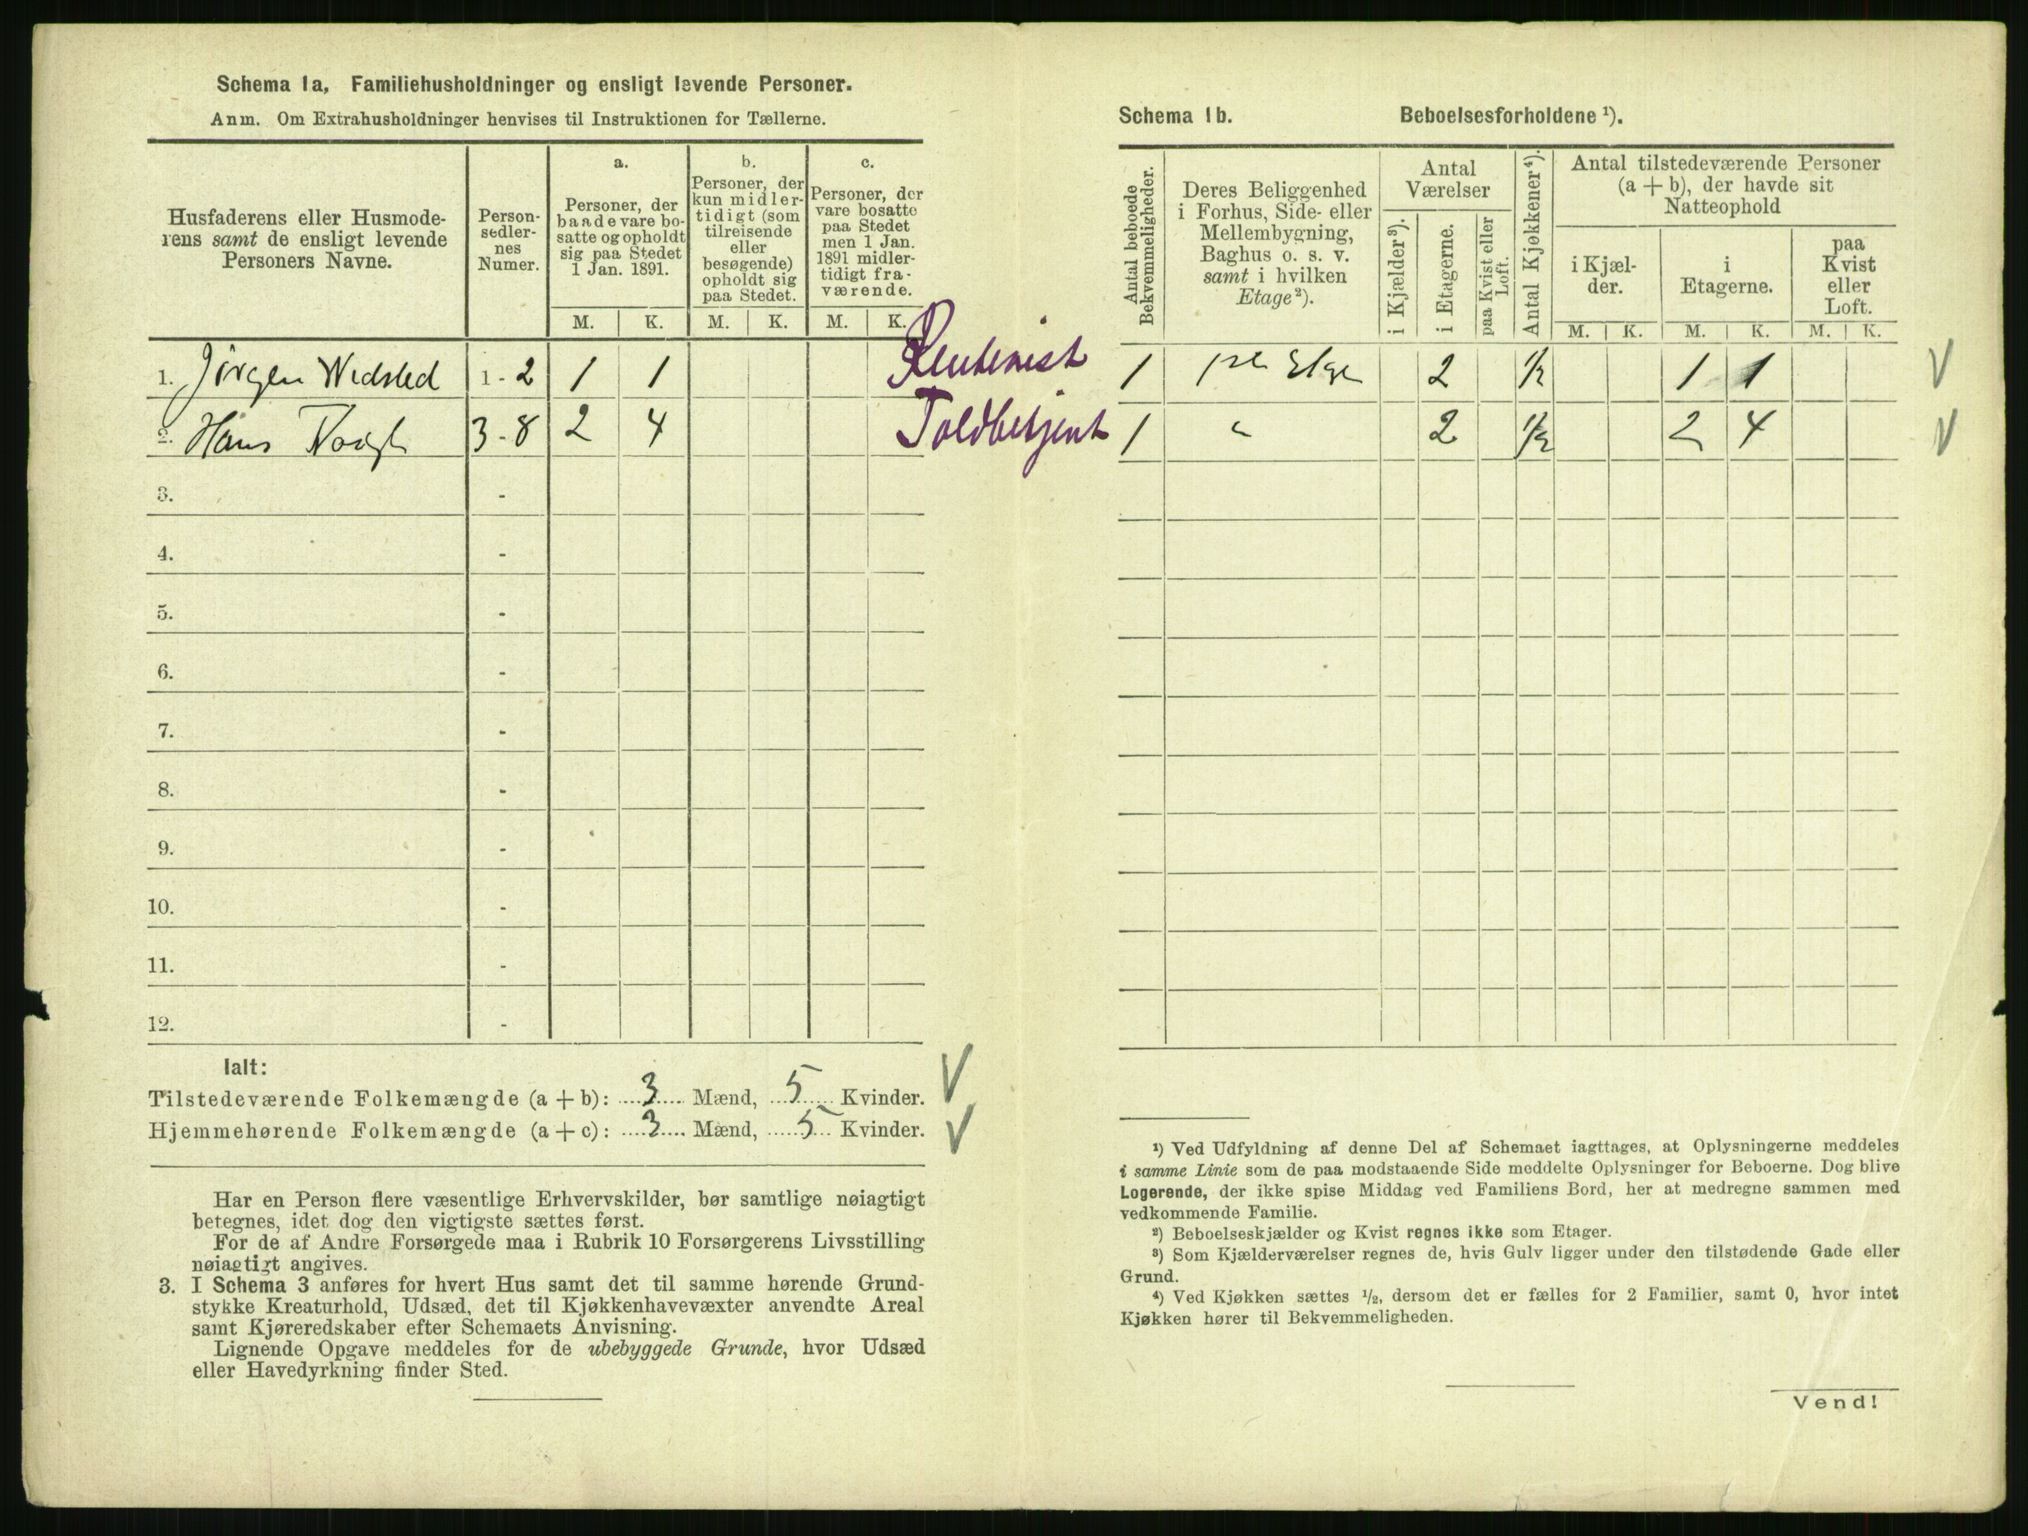 Schema 1a, Familiehusholdninger og ensligt levende Personer.
Anm. Om Extrahusholdninger henvises til Instruktionen for Tællerne.
Husfaderens eller Husmode-
rens samt de ensligt levende
Personers Navne.
Person-
sedler-
nes
Numer.
a.
Personer, der
baade vare bo-
satte og opholdt
sig paa Stedet
1 Jan. 1891.
b.
Personer, der
kun midler-
tidigt (som
tilreisende
eller
besøgende)
opholdt sig
paa Stedet.
c.
Personer, der
vare bosatte
paa Stedet
men 1 Jan.
1891 midler-
tidigt fra-
værende.
M. K. M. K. M. K.
1. Jörgen Wedsted 1 - 2 1 1 Rentenist
2. Hans 3 - 8 2 4 Toldbetjent
3. -
4. -
5. -
6. -
7. -
8. -
9. -
10. -
11. -
12. -
Ialt:
Tilstedeværende Folkemængde (a + b): 3 Mænd, 5 Kvinder. V
Hjemmehørende Folkemængde (a + c): 3 Mænd, 5 Kvinder. V
Har en Person flere væsentlige Erhvervskilder, bør samtlige nøiagtigt
betegnes, idet dog den vigtigste sættes først.
For de af Andre Forsørgede maa i Rubrik 10 Forsørgerens Livsstilling
nøiagtigt angives.
3. I Schema 3 anføres for hvert Hus samt det til samme hørende Grund-
stykke Kreaturhold, Udsæd, det til Kjøkkenhavevæxter anvendte Areal
samt Kjøreredskaber efter Schemaets Anvisning.
Lignende Opgave meddeles for de ubebyggede Grunde, hvor Udsæd
eller Havedyrkning finder Sted.
Schema 1b. Beboelsesforholdene ¹).
Antal beboede
Bekvemmeligheder.
Deres Beliggenhed
i Forhus, Side- eller
Mellembygning,
Baghus o. s. v.
samt i hvilken
Etage ²).
Antal
Værelser
i Kjælder ³).
i Etagerne.
paa Kvist eller
Loft.
Antal Kjøkkener ⁴).
Antal tilstedeværende Personer
(a + b), der havde sit
Natteophold
i Kjæl-
der.
i
Etagerne.
paa
Kvist
eller
Loft.
M. K. M. K. M. K.
1 1ste Etge 2 ½ 1 1 V
1 " 2 ½ 2 4 V
¹) Ved Udfyldning af denne Del af Schemaet iagttages, at Oplysningerne meddeles
i samme Linie som de paa modstaaende Side meddelte Oplysninger for Beboerne. Dog blive
Logerende, der ikke spise Middag ved Familiens Bord, her at medregne sammen med
vedkommende Familie.
²) Beboelseskjælder og Kvist regnes ikke som Etager.
³) Som Kjælderværelser regnes de, hvis Gulv ligger under den tilstødende Gade eller
Grund.
⁴) Ved Kjøkken sættes ½, dersom det er fælles for 2 Familier, samt 0, hvor intet
Kjøkken hører til Bekvemmeligheden.
Vend!